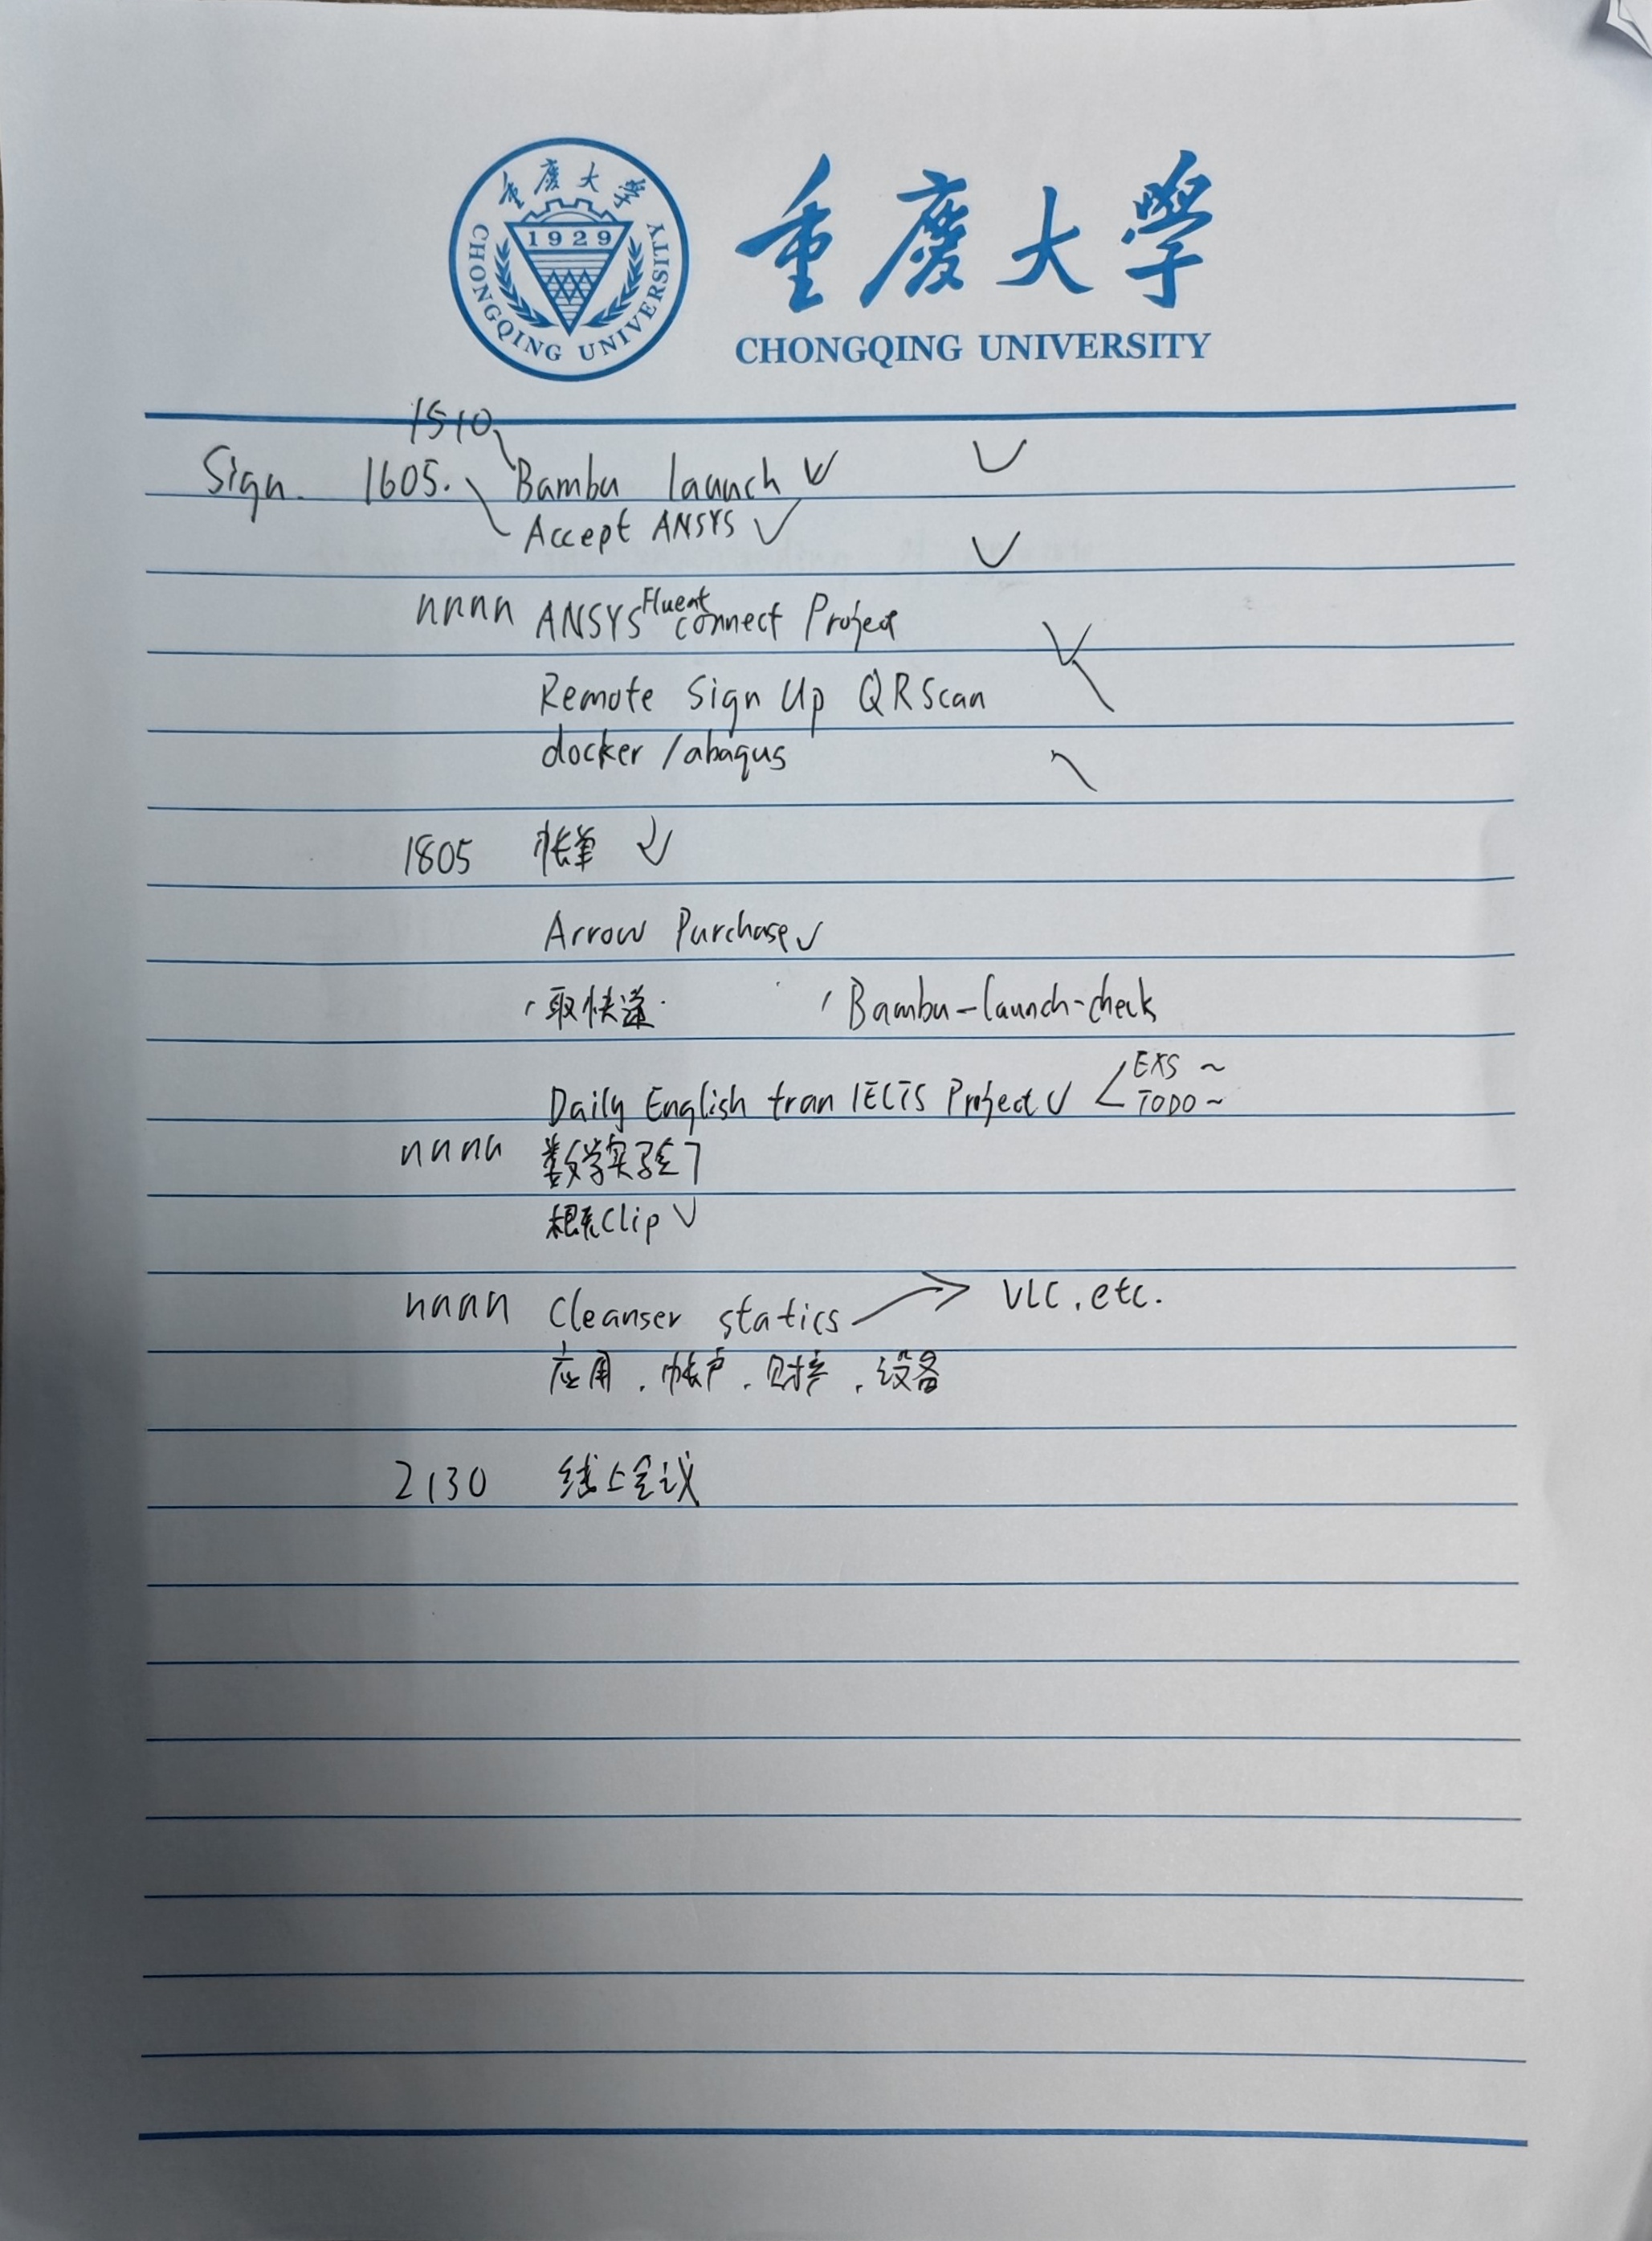 重庆大学
1929
CHONGQING UNIVERSITY
重慶大學
CHONGQING UNIVERSITY
1510
Sign. 1605. Bambu launch ✓ ✓
Accept ANSYS ✓ ✓
nnnn ANSYS Fluent connect Project ✓
Remote Sign Up QR Scan
docker /abaqus
1805 帐单
Arrow Purchase ✓
取快递. Bambu-launch-check
EXS ~
Daily English tran IELTS Project ✓ TODO ~
nnnn 数学实验
根系Clip ✓
nnnn Cleanser statics → VLC, etc.
应用, 帐户, 财产, 设备
2130 线上会议